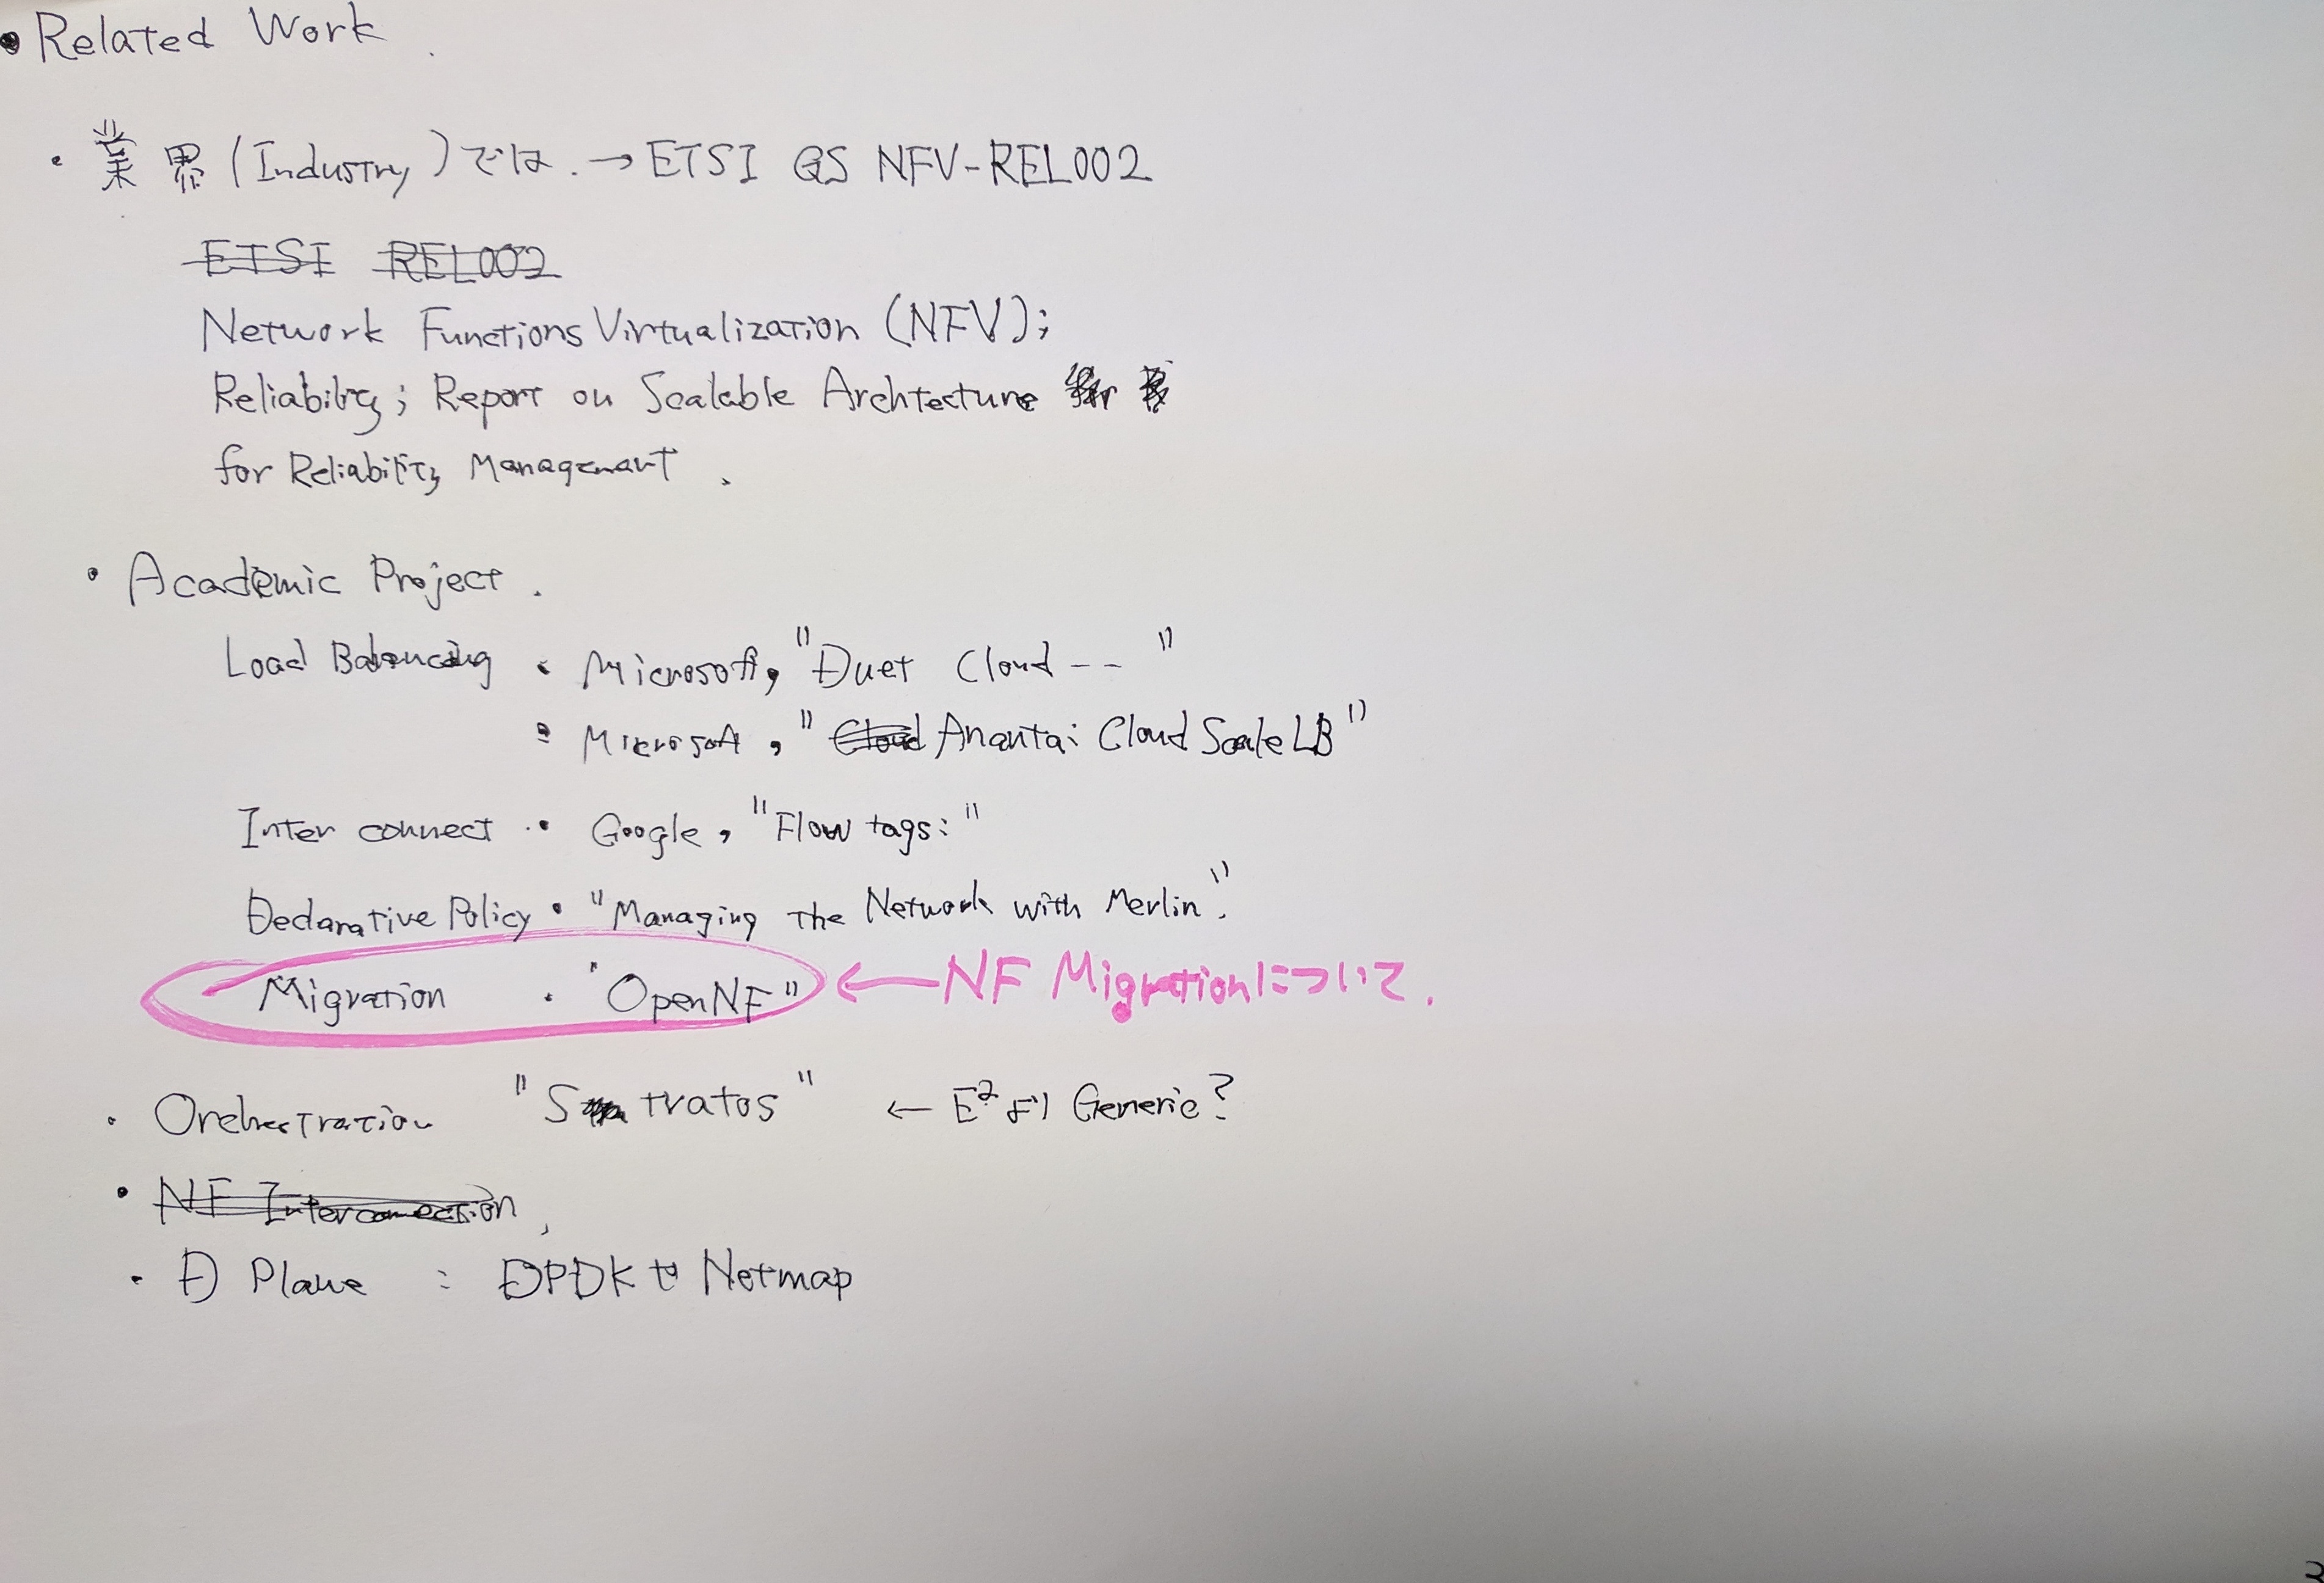 • Related Work.
• 業界 (Industry) では. → ETSI GS NFV-REL002
ETSI REL002
Network Functions Virtualization (NFV);
Reliability; Report on Scalable Archtecture
for Reliability Management.
• Academic Project.
Load Balancing • Microsoft, "Duet Cloud -- "
• Microsoft, " Cloud Ananta: Cloud Scale LB"
Inter connect • Google, "Flow tags:"
Declarative Policy • "Managing the Network with Merlin".
Migration • "OpenNF" ← NF Migrationについて.
• Orchestration "Stratos" ← E² より Generic?
• NF Interconnection,
• D Plane : DPDK や Netmap